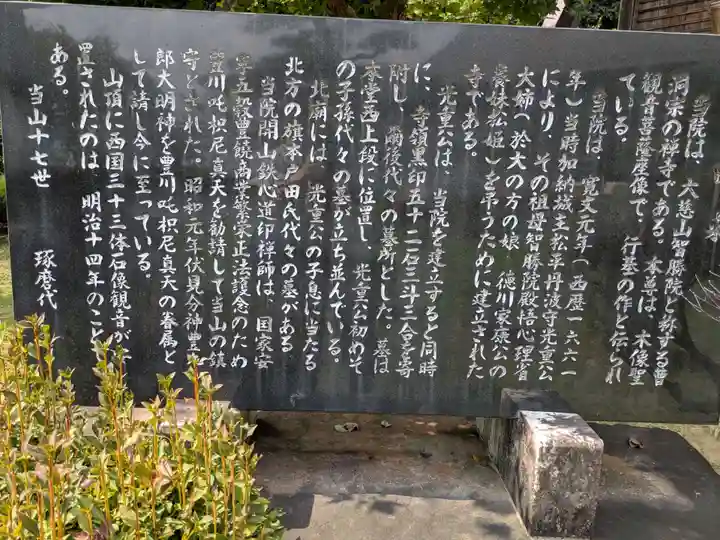 当院は、大慈山智勝院と称する曹
洞宗の禅寺である。本尊は、木像聖
観音菩薩座像で、行基の作と伝られ
ている。
当院は、寛文元年(西歴一六六一
年)当時加納城主松平丹波守光重公
により、その祖母智勝院殿悟心理省
大姉(於大の方の娘、徳川家康公の
義妹松姫)を弔うために建立された
寺である。
光重公は、当院を建立すると同時
に、寺領黒印五十二石三斗三合を寄
附し、爾後代々の墓所とした。墓は
本堂西上段に位置し、光重公初めそ
の子孫代々の墓が立ち並んでいる。
北廟には、光重公の子息に当たる
北方の旗本戸田氏代々の墓がある
当院開山鉄心道印禅師は、国家安
寧五穀豊饒商学業栄正法護念のため
豊川吒枳尼真天を勧請して当山の鎮
守とされた。昭和元年伏見今神豊
郎大明神を豊川吒枳尼真天の眷属と
して請し今に至っている。
山頂に西国三十三体石像観音が
置されたのは、明治十四年のこと
ある。
当山十七世 琢磨代